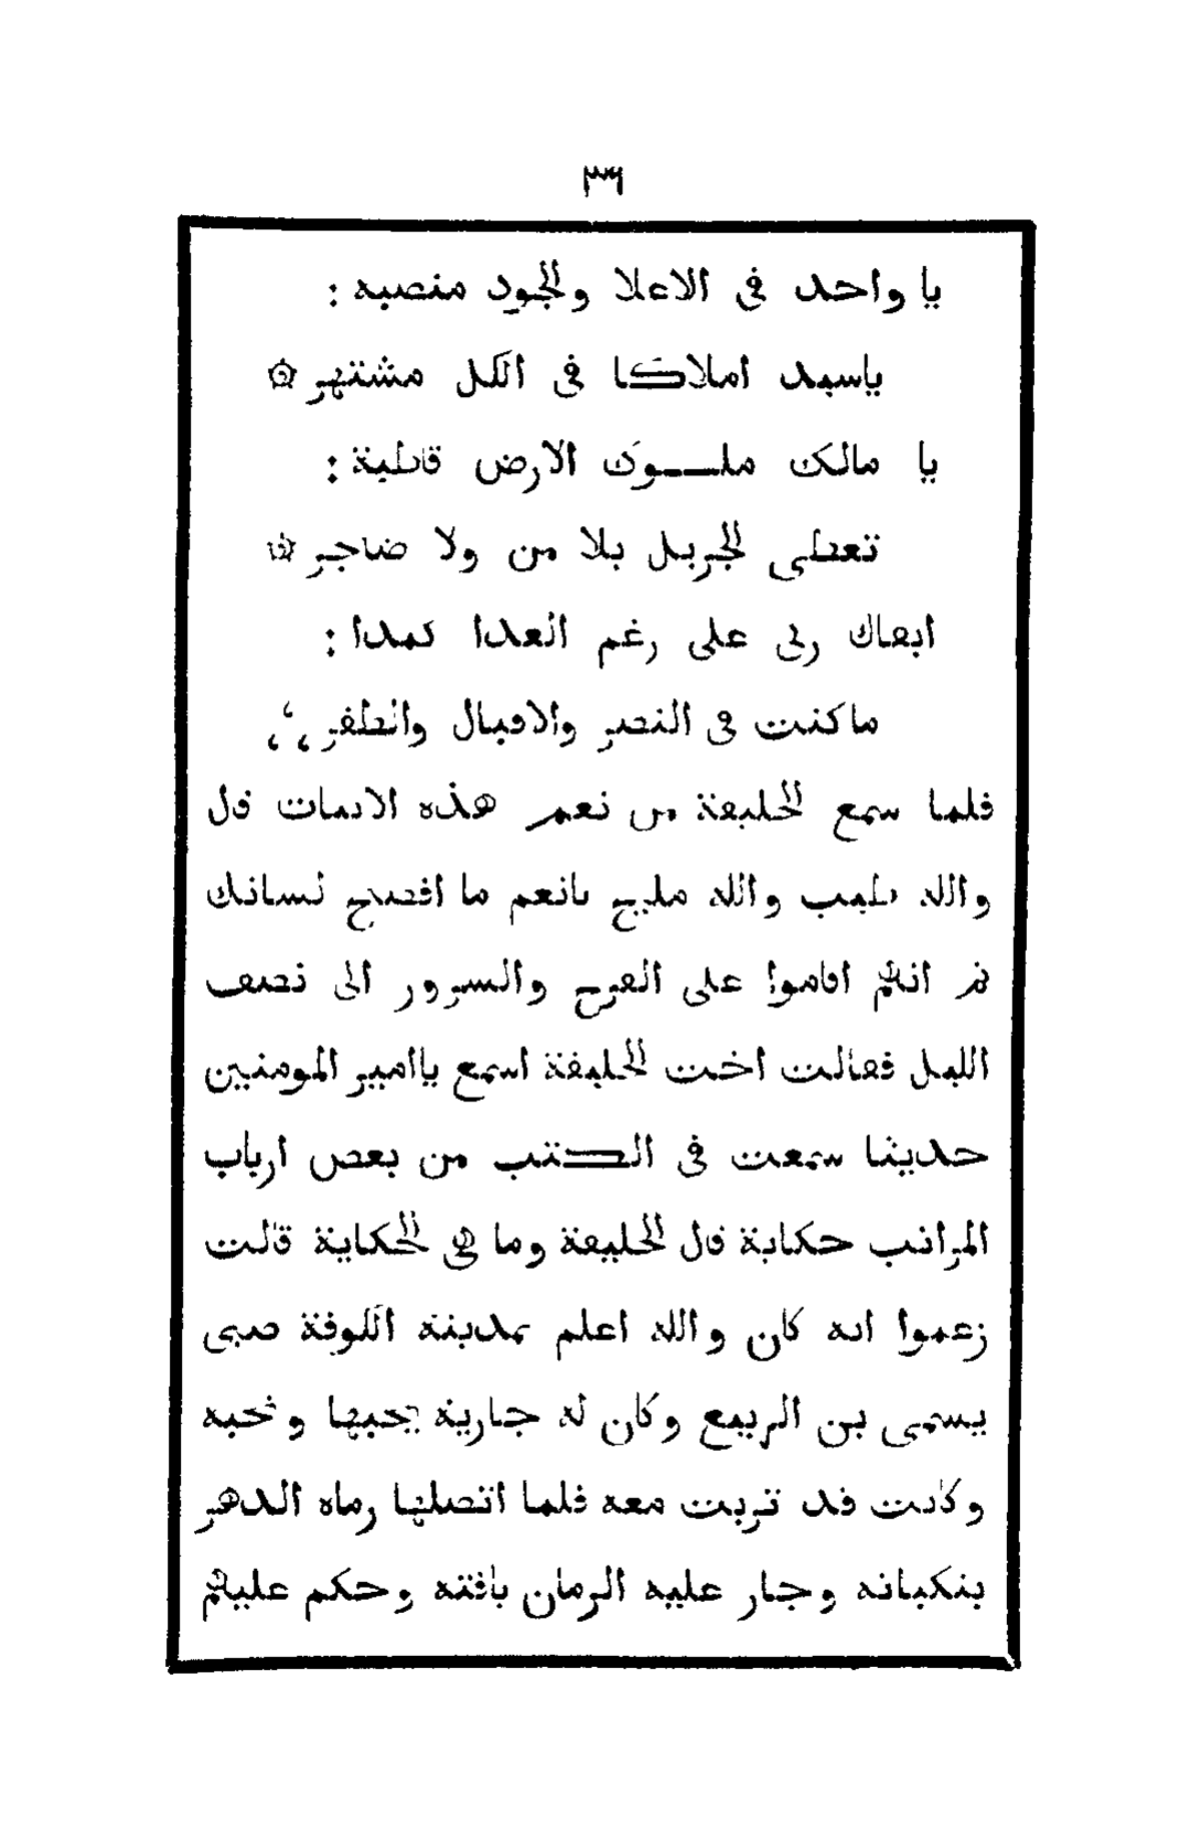 ٣٦
يا واحد فى الاعلا والجود منصبه :
ياسيد املاكا فى الكل مشتهر ۞
يا مالك ملـــوك الارض قاطبة :
تعطى الجزيل بلا من ولا ضاجر ۞
ابقاك ربى على رغم العدا كمدا :
ما كنت فى النصر والاقبال والظفر ،‘،
فلما سمع الخليفة من نعم هذه الابيات قال
والله طيب والله مليح يانعم ما افصح لسانك
ثم انهم اقاموا على الفرح والسرور الى نصف
الليل فقالت اخت الخليفة اسمع ياامير المومنين
حديثا سمعت فى الكتب من بعض ارباب
المراتب حكاية قال الخليفة وما هى الحكاية قالت
زعموا انه كان والله اعلم بمدينة الكوفة صبى
يسمى بن الربيع وكان له جارية يحبها وتحبه
وكانت قد تربت معه فلما اتصلها رماه الدهر
بنكباته وجار عليه الزمان بافته وحكم عليهم